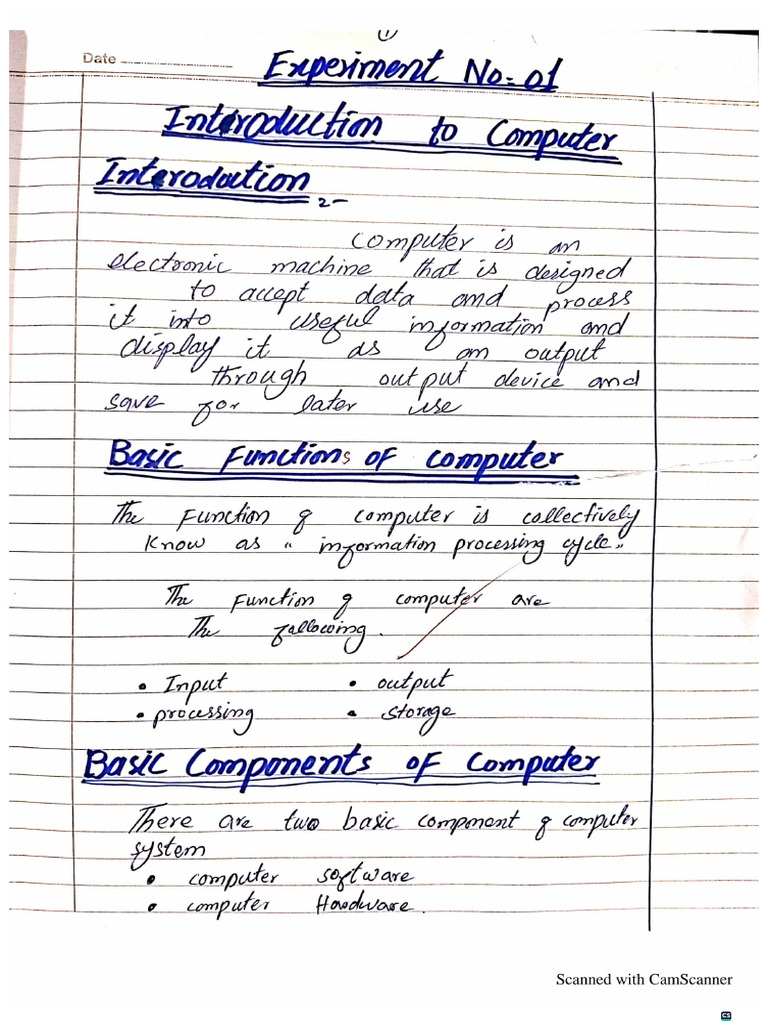 1
Date
Experiment No= 01
Introduction to Computer
Interoduction :-
Computer is an
electronic machine that is designed
to accept data and process
it into useful information and
display it as an output
through output device and
save for later use
Basic Functions of computer
The Function of computer is collectively
know as "information processing cycle"
The Function of computer are
The following.
• Input • output
• processing • storage
Basic Components of Computer
There are two basic component of computer
system
• computer software
• computer Hardware.
Scanned with CamScanner
CS